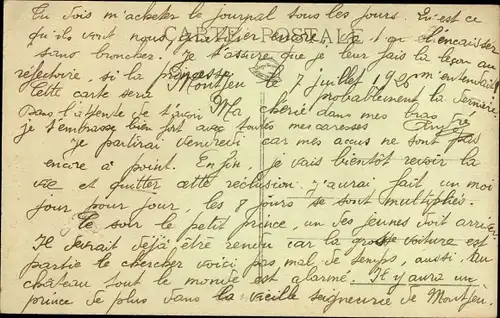 Tu dois m'acheter le journal tous les jours. Qu'est ce
qu'ils vont nous
CARTE POSTALE
sans broncher. Je t'assure que je leur fais la leçon au
réfectoire si la princesse m'entendait!
Montjeu le 7 juillet 1920
Cette carte sera probablement la dernière
Dans l'attente de t'avoir Ma chérie dans mes bras
je t'embrasse bien fort avec toutes mes caresses
je partirai vendredi car mes accus ne sont pas
encore à point. Enfin je vais bientôt revoir la
vie et quitter cette réclusion. J'aurai fait un mois
jour pour jour, les 8 jours se sont multipliés.
Ce soir le petit prince, un des jeunes doit arriver.
Il devrait déjà être rendu car la grosse voiture est
partie le chercher voici pas mal de temps, aussi, au
château tout le monde est alarmé. Il y aura un
prince de plus dans la vieille seigneurie de Montjeu.